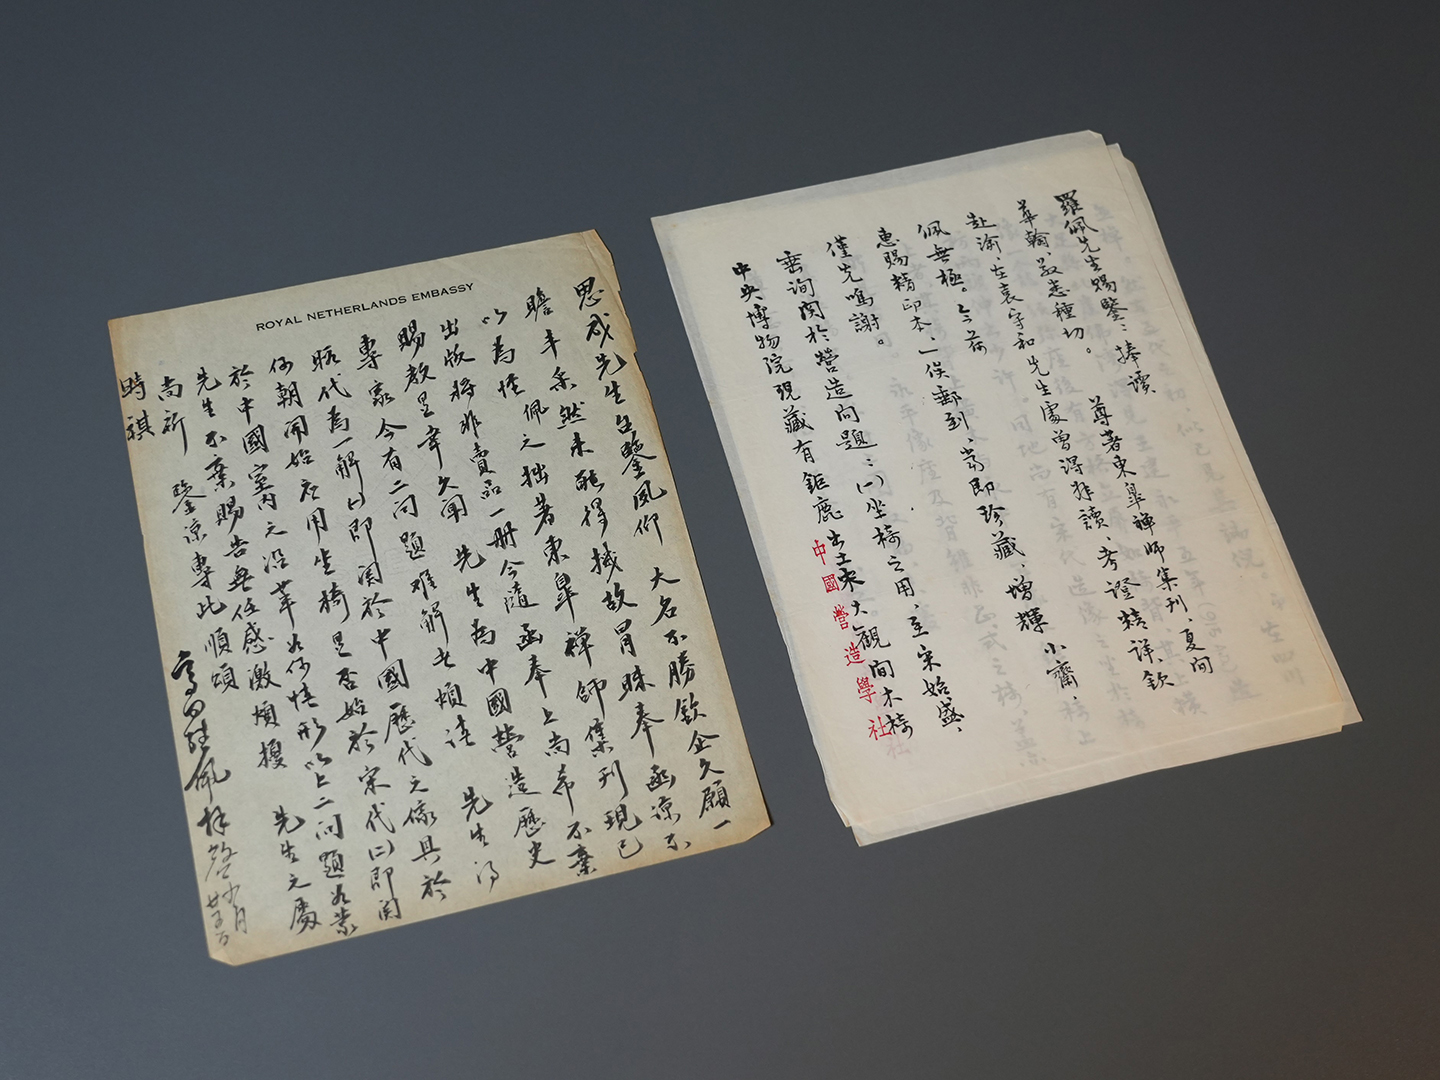 ROYAL NETHERLANDS EMBASSY
思成先生台鑒風仰 大名不勝欽企久願一
瞻丰采然未能得機故冒昧奉函諒不
以為怪佩之拙著東皋禪師集刊現已
出版將非賣品一冊今隨函奉上尚希不棄
賜教是幸久聞 先生為中國營造歷史
專家今有二問題難解者煩請 先生得
暇代為一解(一)即關於中國歷代之傢具於
何朝開始應用坐椅是否始於宋代(二)即關
於中國室內之沿革如何情形以上二問題如蒙
先生不棄賜告無任感激煩擾 先生之處
尚祈 鑒諒專此順頌
時祺 高羅佩拜啓 月廿五日
羅佩先生賜鑒：捧讀
華翰，敬悉種切。 尊著東皋禪師集刊，夏間
赴渝，在袁守和先生處曾得拜讀，考證精詳，欽
佩無極。今荷
惠賜精印本，一俟郵到，當即珍藏，增輝 小齋，
僅先鳴謝。
垂詢關於營造問題：(一)坐椅之用，至宋始盛，
中央博物院現藏有鉅鹿出土宋大觀間木椅
中國營造學社